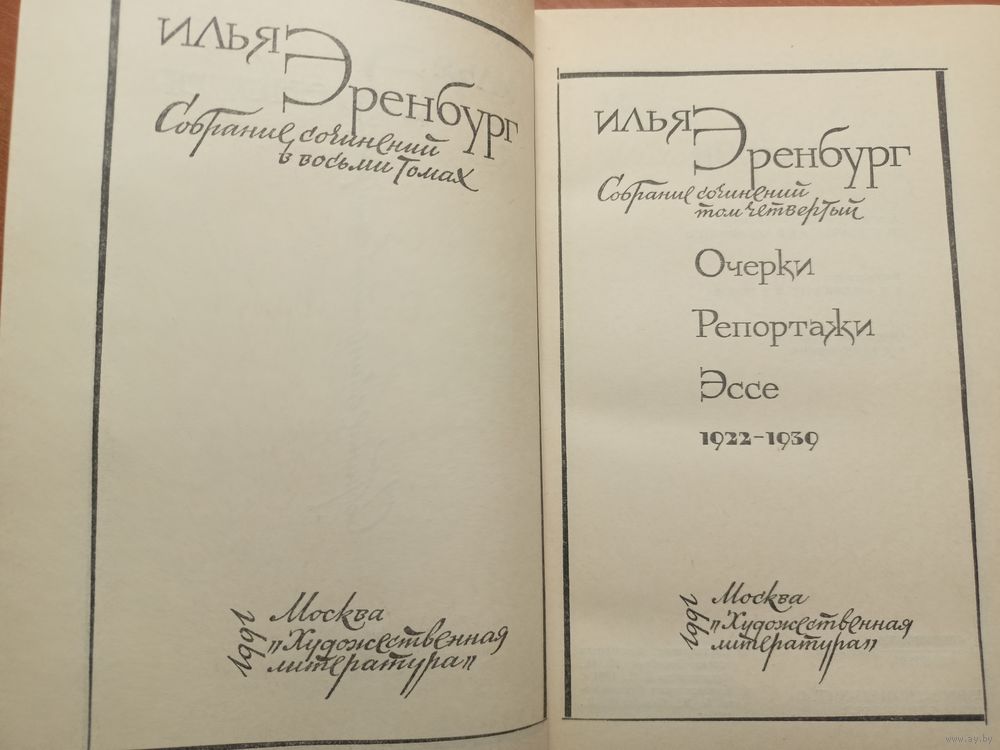 Илья Эренбург
Собрание сочинений
в восьми томах
1991
Москва
"Художественная
литература"
Илья Эренбург
Собрание сочинений
том четвертый
Очерки
Репортажи
Эссе
1922-1939
1991
Москва
"Художественная
литература"
www.ay.by